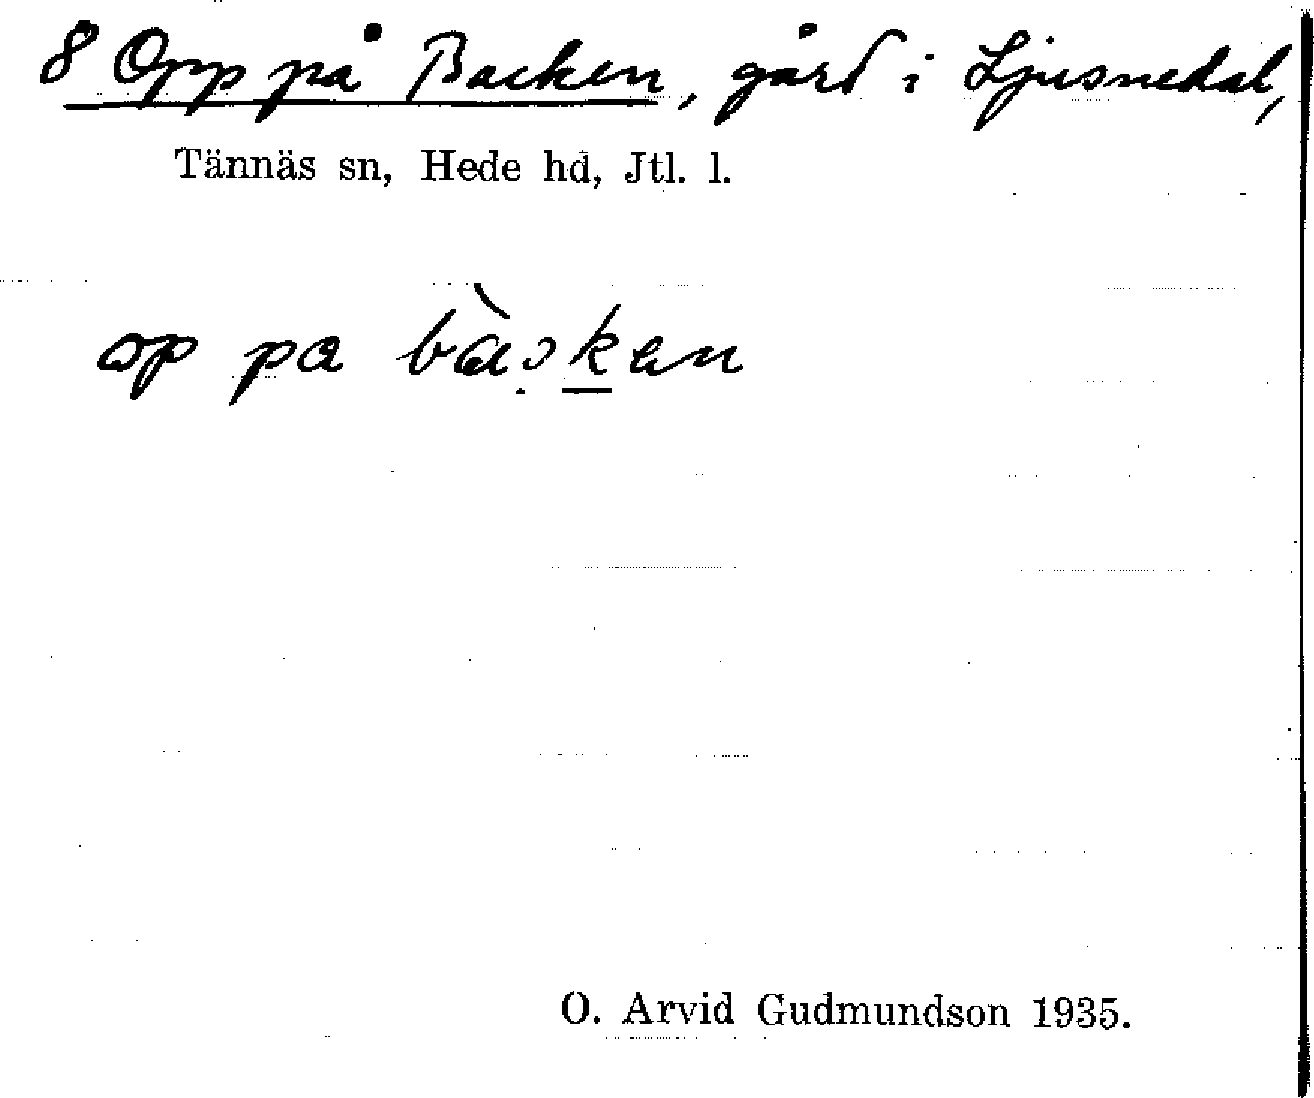 8 Opp på Backen, gård i Ljusnedal,
Tännäs sn, Hede hd, Jtl. l.
op pa
O. Arvid Gudmundson 1935.